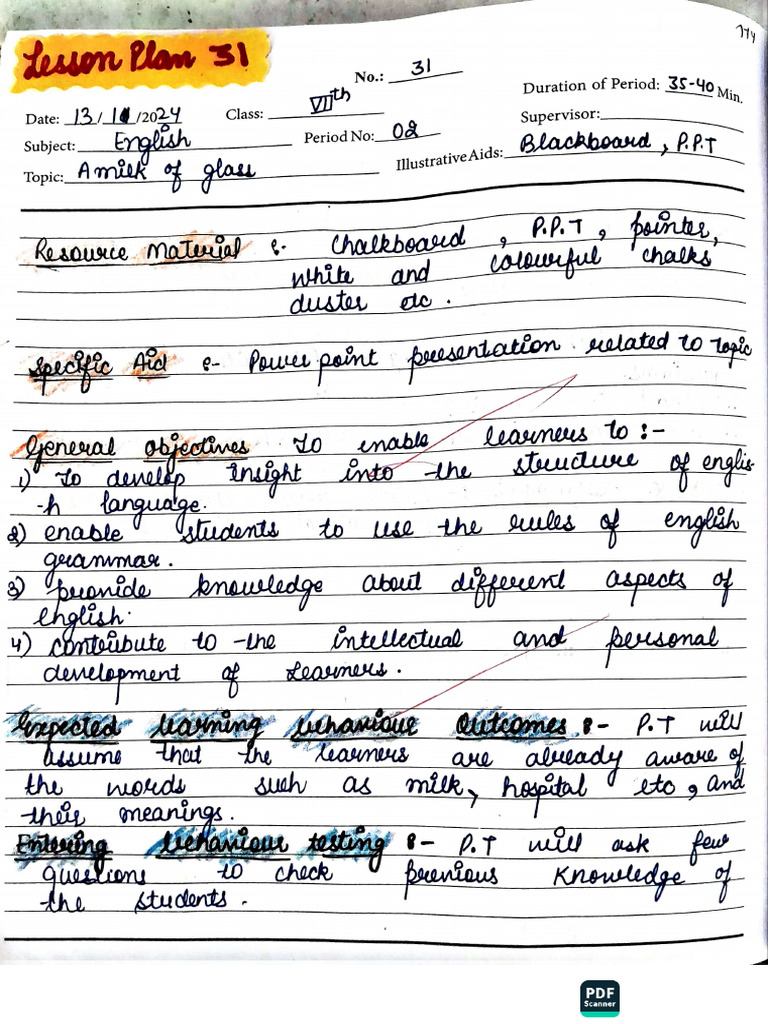 Lesson Plan 31
174
No.: 31
Duration of Period: 35-40 Min.
Date: 13/11/2024 Class: VIIth
Supervisor:
Subject: English Period No: 02
Illustrative Aids: Blackboard, P.P.T
Topic: A milk of glass
Resource Material :- Chalkboard, P.P.T, pointer,
white and colourful chalks
duster etc.
Specific Aid :- Power point presentation related to topic
General objectives To enable learners to :-
1) To develop insight into the structure of englis-
-h language.
2) enable students to use the rules of english
grammar.
3) provide knowledge about different aspects of
English.
4) contribute to the intellectual and personal
development of Learners.
Expected learning behaviour Outcomes :- P.T will
assume that the learners are already aware of
the words such as milk, hospital etc, and
their meanings.
Entering behaviour testing :- P.T will ask few
questions to check previous Knowledge of
the students.
PDF
Scanner